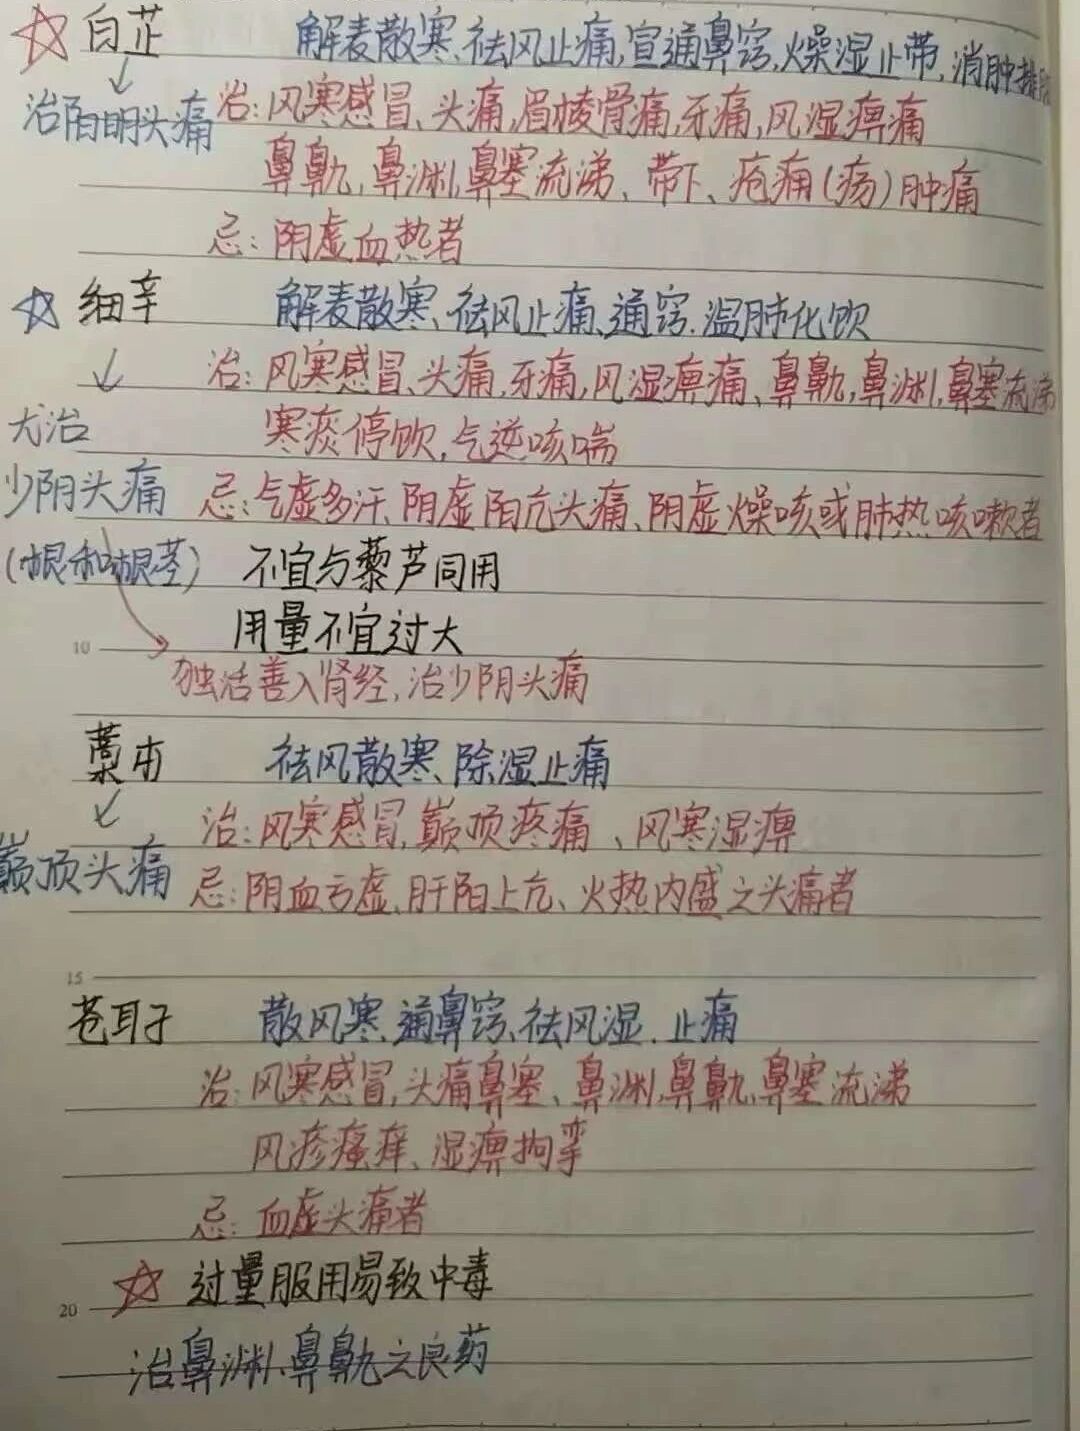 白芷 解表散寒、祛风止痛,宣通鼻窍,燥湿止带,消肿排
治阳明头痛 治:风寒感冒、头痛,眉棱骨痛,牙痛,风湿痹痛
鼻鼽,鼻渊,鼻塞流涕、带下、疮痈(疡)肿痛
忌:阴虚血热者
细辛 解表散寒、祛风止痛、通窍、温肺化饮
治:风寒感冒、头痛,牙痛,风湿痹痛、鼻鼽,鼻渊,鼻塞流涕
尤治 寒痰停饮,气逆咳喘
少阴头痛 忌:气虚多汗、阴虚阳亢头痛、阴虚燥咳或肺热咳嗽者
(根和根茎) 不宜与藜芦同用
用量不宜过大
10
独活善入肾经,治少阴头痛
藁本 祛风散寒、除湿止痛
治:风寒感冒,巅顶疼痛、风寒湿痹
巅顶头痛 忌:阴血亏虚、肝阳上亢、火热内盛之头痛者
15
苍耳子 散风寒、通鼻窍、祛风湿、止痛
治:风寒感冒,头痛鼻塞、鼻渊,鼻鼽,鼻塞流涕
风疹瘙痒、湿痹拘挛
忌:血虚头痛者
过量服用易致中毒
20
治鼻渊、鼻鼽之良药